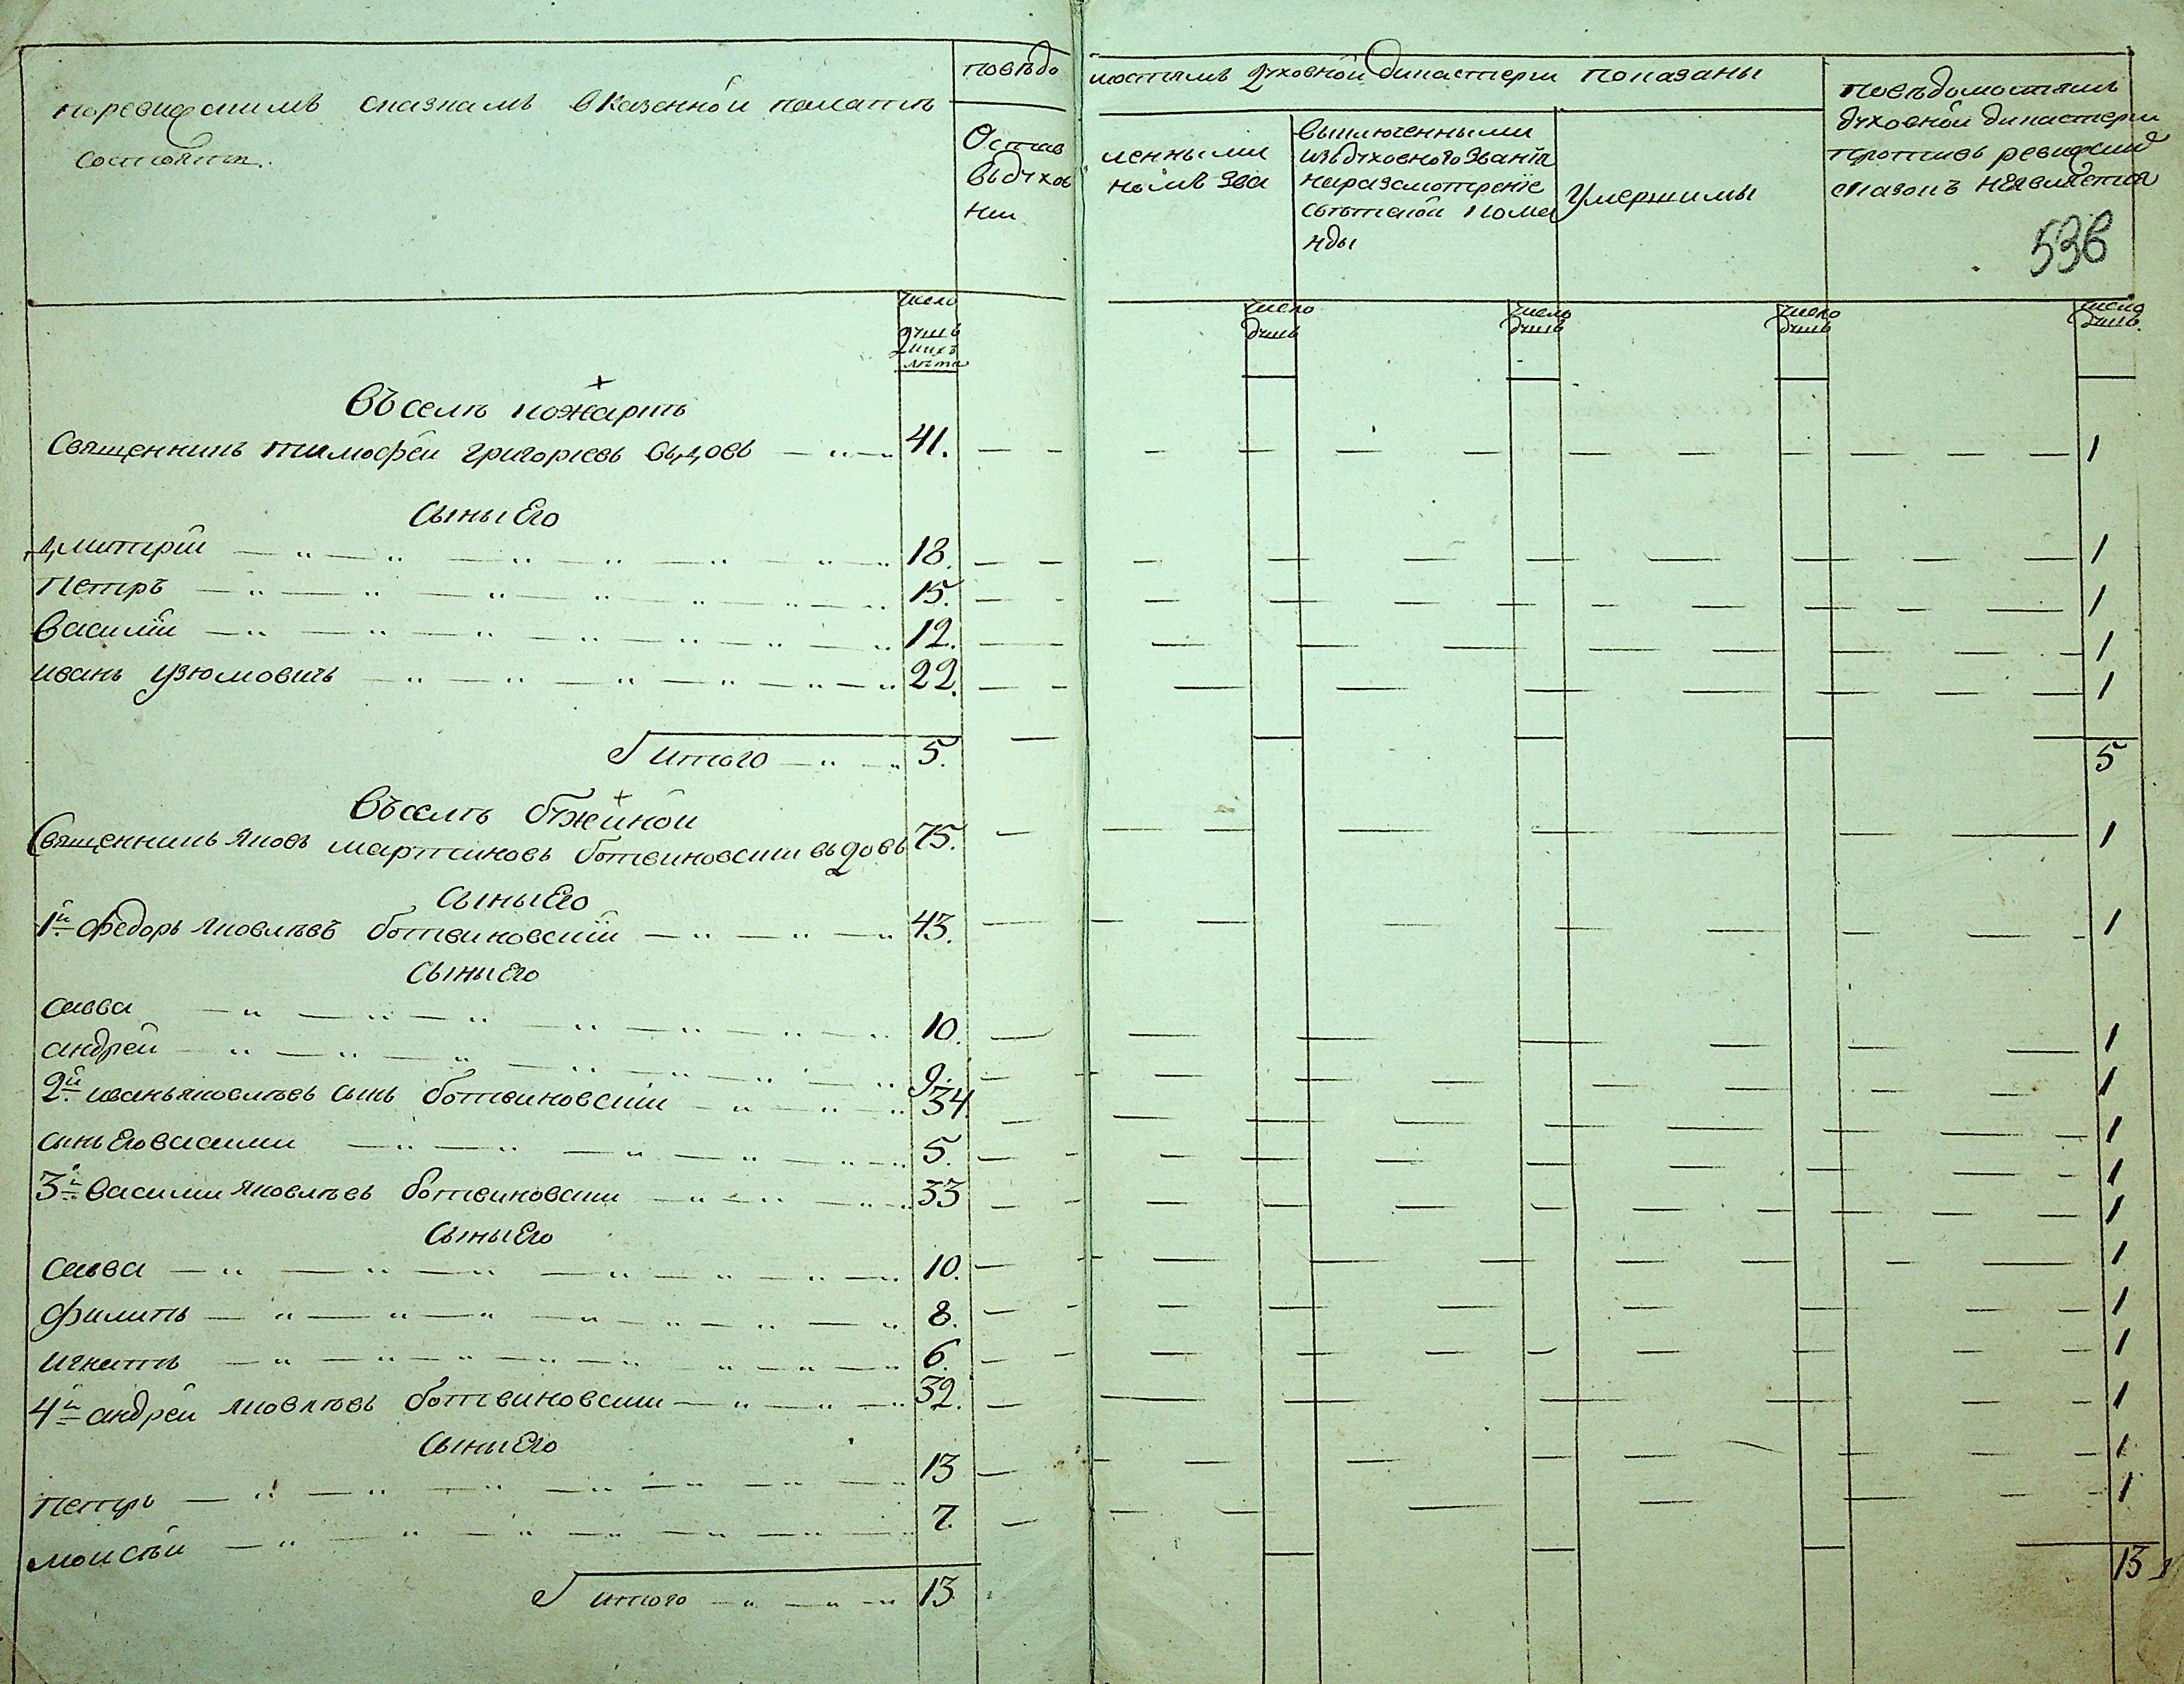 поревизскимъ сказкамъ вказенной палатѣ
состоитъ.
повѣдо мостямъ духовной дикастерии показаны
Остав ленными
вьдухов номъ зва
нии
выключенными
изьдуховного звания
наразсмотрѣние
свѣтской коме
нды
Умершимы
повѣдомостямъ
духовной дикастерии
противъ ревизкихъ
сказокъ неявляется
536
число
душъ
ихъ
лѣта
число
душъ
число
душъ
число
душъ
число
душъ.
Въ селѣ пожаркѣ
Священникъ тимофей григориевъ вьдовъ 41. 1
Сыны Его
дмитрий 18. 1
Петръ 15. 1
Василий 12. 1
иванъ 22. 1
итого 5. 5
Въ селѣ бужинкой
Священникъ яковъ мартиновъ ботвиновский вьдовъ 75. 1
Сыны Его
1й Федоръ яковлѣвъ ботвиновский 43. 1
Сыны Его
Савва 10. 1
андрей 9. 1
2й иванъ яковлѣвъ сынъ ботвиновский 34 1
сынъ Его василии 5. 1
3й Василии яковлѣвъ ботвиновски 33 1
Сыны Его
Савва 10. 1
филипъ 8. 1
игнатъ 6. 1
4й андрей яковлѣвъ ботвиновски 32. 1
Сыны Его
петръ 13 1
моисѣй 7. 1
итого 13 13